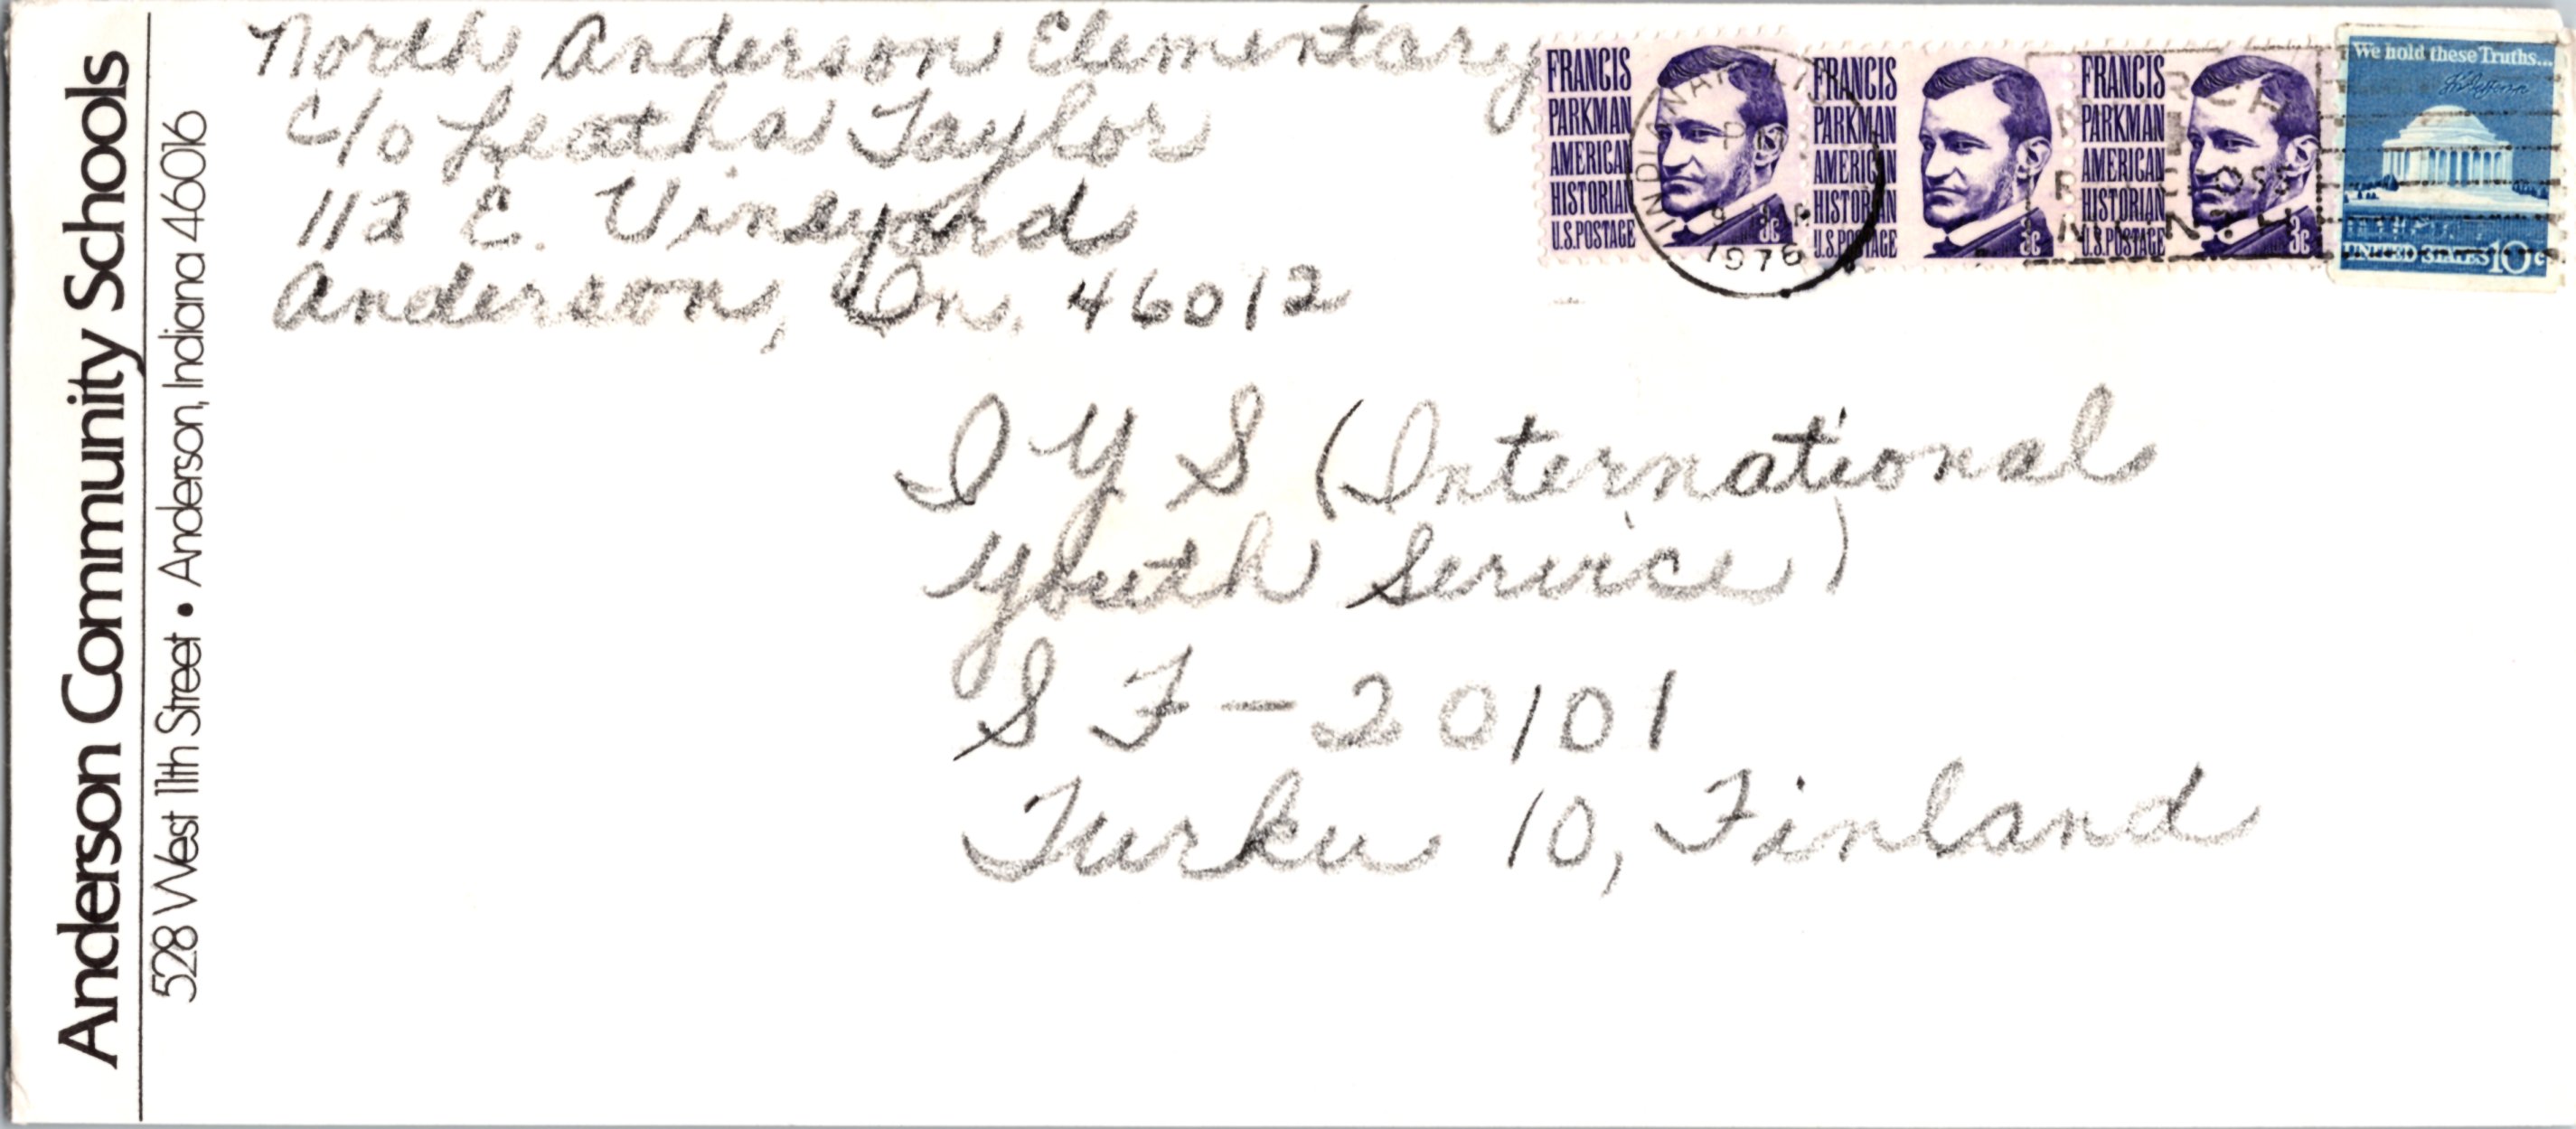 Anderson Community Schools
528 West 11th Street • Anderson, Indiana 46016
North Anderson Elementary
c/o Leatha Taylor
112 E. Vineyard
Anderson, In. 46012
FRANCIS
PARKMAN
AMERICAN
HISTORIAN
U.S.POSTAGE
3c
FRANCIS
PARKMAN
AMERICAN
HISTORIAN
U.S.POSTAGE
3c
FRANCIS
PARKMAN
AMERICAN
HISTORIAN
U.S.POSTAGE
3c
We hold these Truths...
UNITED STATES 10c
INDIANAPOLIS
PM
1976
I Y S (International
Youth Service)
S F - 20101
Turku 10, Finland